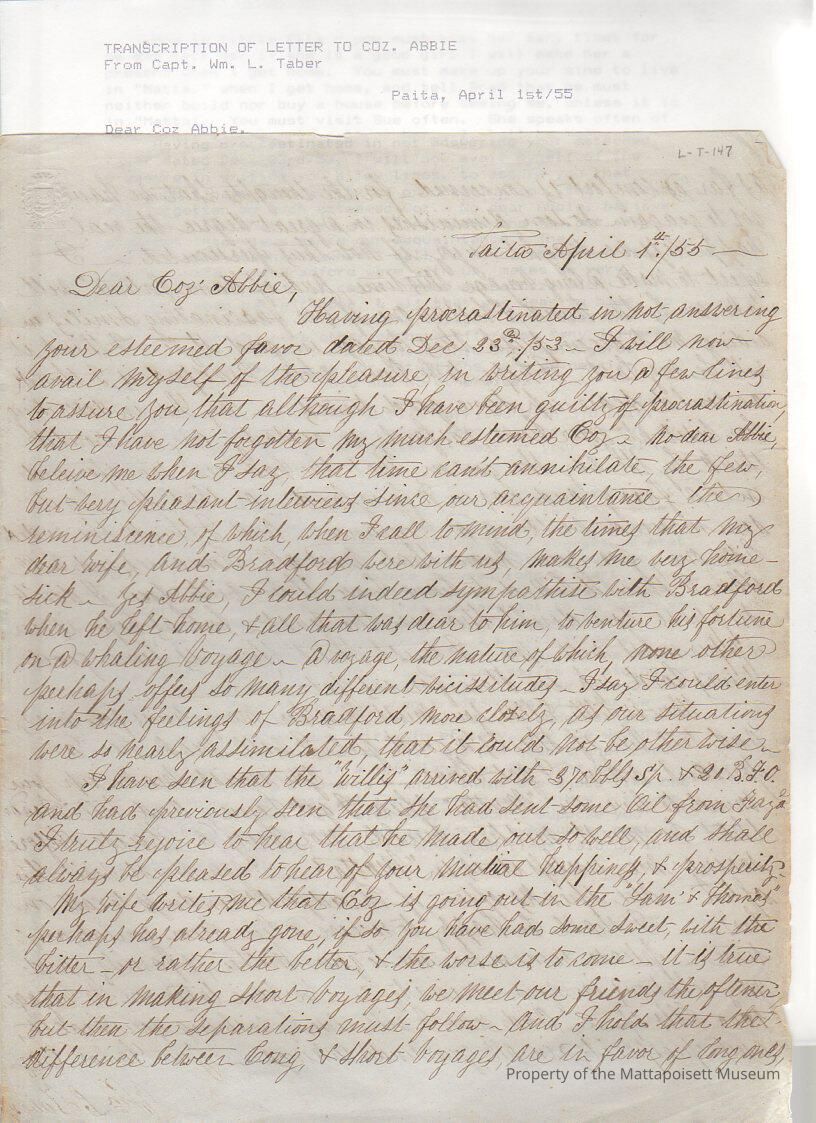 TRANSCRIPTION OF LETTER TO COZ. ABBIE
From Capt. Wm. L. Taber
Paita, April 1st/55
Dear Coz Abbie,
L-T-147
Paita April 1st/55
Dear Coz' Abbie,
Having procrastinated in not answering
your esteemed favor dated Dec 23d, /53 - I will now
avail myself of the pleasure, in writing you a few lines
to assure you that although I have been guilty of procrastination
that I have not forgotten my much esteemed Coz - no dear Abbie,
beleive me when I say, that time cant annihilate, the few,
but very pleasant interviews since our acquaintance - the
reminiscence, of which, when I call to mind, the times that my
dear wife, and Bradford were with us, makes me very home-
sick - Yes Abbie, I could indeed sympathise with Bradford
when he left home, & all that was dear to him, to venture his fortune
on a whaling voyage - a voyage, the nature of which, none other
perhaps, offers so many different vicissitudes - I say I could enter
into the feelings of Bradford more closely, as our situations
were so nearly assimilated, that it could not be otherwise -
I have seen that the "Willis" arrived with 370 bbls Sp. & 20 B.F.O.
and had previously seen that she had sent some Oil from Fayal
I truly rejoice to hear that he made out so well, and shall
always be pleased to hear of your mutual happiness, & prosperity -
My wife writes me that Coz is going out in the "Sam' & Thomas"
perhaps has already gone, if so you have had some sweet, with the
bitter - or rather the better, & the worse is to come - it is true
that in making short voyages, we meet our friends the oftener
but then the separations must follow - And I hold that the
difference between long, & short voyages, are in favor of long ones,
Property of the Mattapoisett Museum